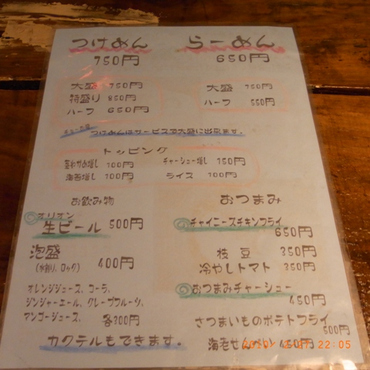 つけめん
750円
大盛 750円
特盛り 850円
ハーフ 650円
らーめん
650円
大盛 750円
ハーフ 550円
つけめんはサービスで大盛に出来ます。
トッピング
100円
チャーシュー増し 150円
海苔増し 100円
ライス 100円
お飲み物
オリオン
生ビール 500円
泡盛
(水割り、ロック) 400円
オレンジジュース、コーラ、
ジンジャーエール、グレープフルーツ、
マンゴージュース、 各300円
カクテルもできます。
おつまみ
チャイニーズチキンフライ
650円
枝豆 350円
冷やしトマト 350円
おつまみチャーシュー
450円
さつまいものポテトフライ
500円
海老せんべい 450円
22:05